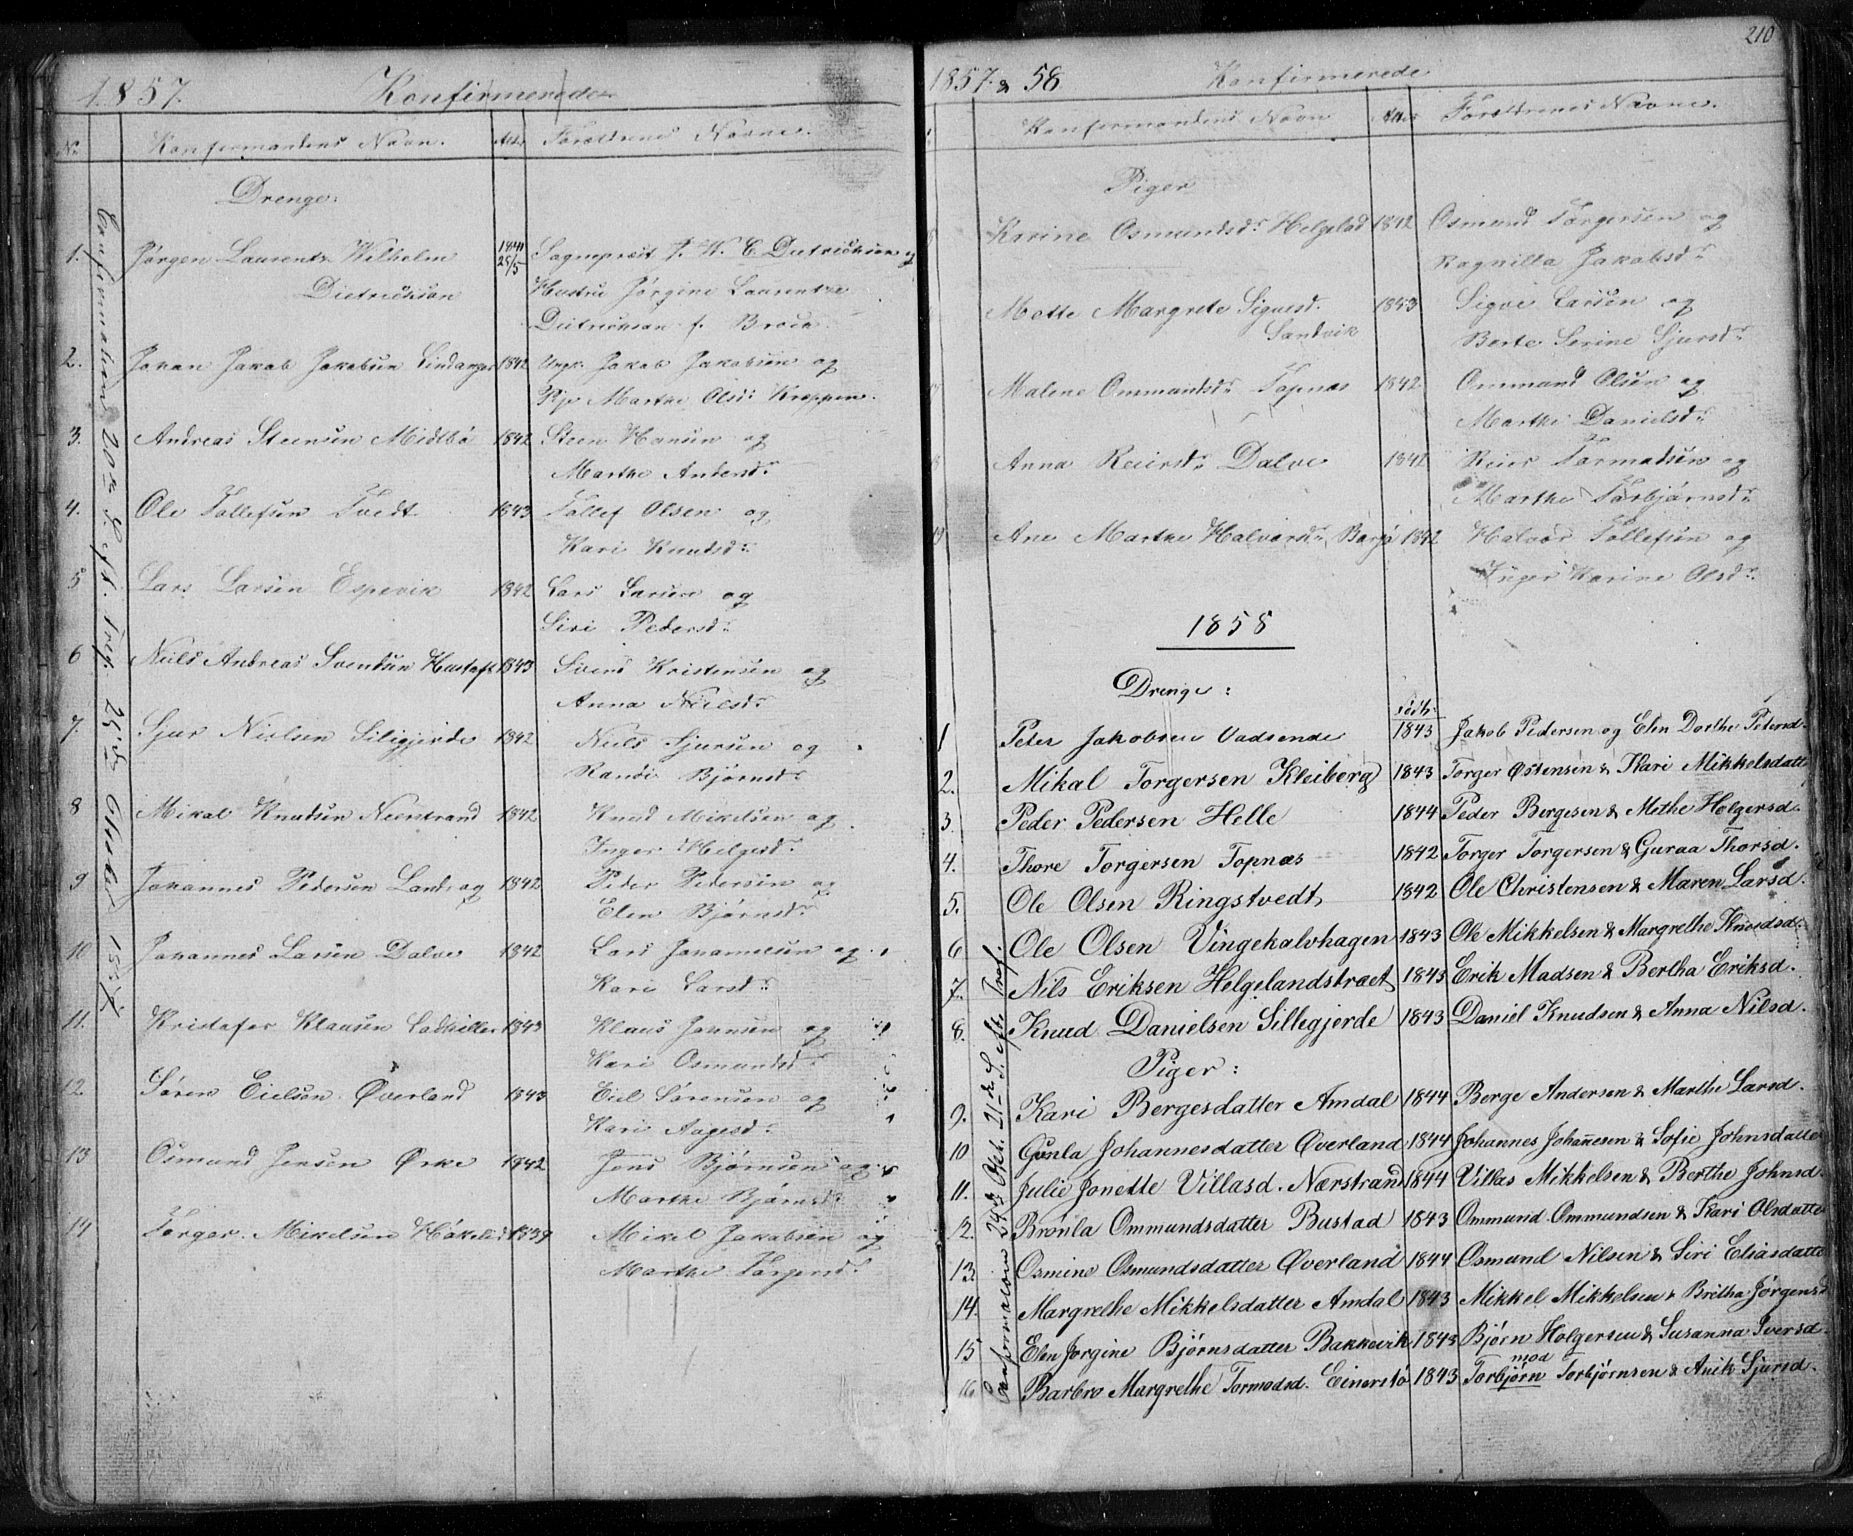 1857. Konfirmerede
No Konfirmandens Navn. Alder Forældrenes Navne.
Drenge:
Confirmation 20de S. eft. Tref. 25de Oktober 1857
1. Jørgen Laurentz Wilhelm 1841 25/5 Sogneprest P. W. C. Dietrichson og
Dietrichson Hustru Jørgine Laurentze
Dietrichson f. Broch
2. Johan Jakob Jakobsen Lindanger 1842 Ungk. Jakob Jakobsen og
Pige Marthe Olsdr Kroppen.
3. Andreas Steensen Midtbø 1842 Steen Hansen og
Marthe Andersdr
4. Ole Tollefsen Tvedt 1843 Tollef Olsen og
Kari Knudsdr
5 Lars Larsen Espevik 1842 Lars Larsen og
Siri Pedersdr
6 Niels Andreas Svendsen Hustoft 1843 Svend Kristensen og
Anna Nielsdr
7. Sjur Nielsen Siligjerde 1842 Niels Sjursen og
Randi Bjørnsdr
8 Mikal Knudsen Neerstrand 1842 Knud Mikelsen og
Inger Helgesdr
9 Johannes Pedersen Landsog 1842 Peder Pedersen og
Elen Bjørnsdr
10 Johannes Larsen Dalve 1842 Lars Johannesen og
Kari Larsdr
11. Kristofer Klausen 1843 Klaus Johnsen og
Kari Osmundsdr
12 Søren Eielsen Øverland 1843 Eiel Sørensen og
Kari Aagesdr
13 Osmund Jensen Ørke 1842 Jens Bjørnsen og
Marthe Bjørnsdr
14 Torger Mikelsen 1839 Mikel Jakobsen og
Marthe Torgersdr
210
1857 & 58 Konfirmerede
Konfirmandens Navn Alder Forældrenes Navne.
Piger
Karine Osmundsdr Helgelad 1842 Osmund Torgersen og
Ragnilla Jakobsdr
Mette Margrete Sigvesd. 1843 Sigve Larsen og
Sandvik Berte Serine Sjursdr
Malene Ommundsdr Topnæs 1842 Ommund Olsen og
Marthe Danielsdr
18 Anna Reiersdr Dalve 1842 Reier Tormodsen og
Marthe Torbjørnsdr
19 Ane Marthe Halvorsdr Borgø 1842 Halvor Tollefsen og
Inger Karine Olsdr
1858
Drenge:
Confirmation 24de Okt. 21de S. efter Tref.
født.
1 Peter Jakobsen Vadsende 1843 Jakob Pedersen og Elen Dorthe Petersd.
2. Mikal Torgersen Kleiberg 1843 Torger Østensen & Kari Mikkelsdatt.
3. Peder Pedersen Helle 1844 Peder Bergesen & Methe Holgersd.
4. Thore Torgersen Topnæs 1842 Torger Torgersen & Guraa Thorsd.
5. Ole Olsen Ringstvedt 1842 Ole Christensen & Maren Larsd.
6 Ole Olsen Vingekalvhagen 1843 Ole Mikkelsen & Margrethe Knudsd.
7. Nils Eriksen Helgelandstræet 1843 Erik Madsen & Bertha Eriksd.
8. Knud Danielsen Sillegjerde 1843 Daniel Knudsen & Anna Nilsd.
Piger:
9. Kari Bergesdatter Amdal 1844 Berge Andersen & Marthe Larsd.
10 Gunla Johannesdatter Øverland 1844 Johannes Johannesen & Sofie Johnsdatte
11. Julie Jonette Villasd. Nærstrand 1844 Villas Mikkelsen & Berthe Johnsd.
12. Brønla Ommundsdatter Bustad 1843 Ommund Ommundsen & Kari Olsdatte
13. Osmine Osmundsdatter Øverland 1844 Osmund Nilsen & Siri Eliasdatte
14. Margrethe Mikkelsdatter Amdal 1843 Mikkel Mikkelsen & Britha Jørgensd
15 Elen Jorgine Bjørnsdatter Bakkevik 1843 Bjørn Holgersen & Susanna Iversd.
16 Barbro Margrethe Tormodsd. Einerstø 1843 Torbjørn mod Torbjørnsen & Anik Sjursd.